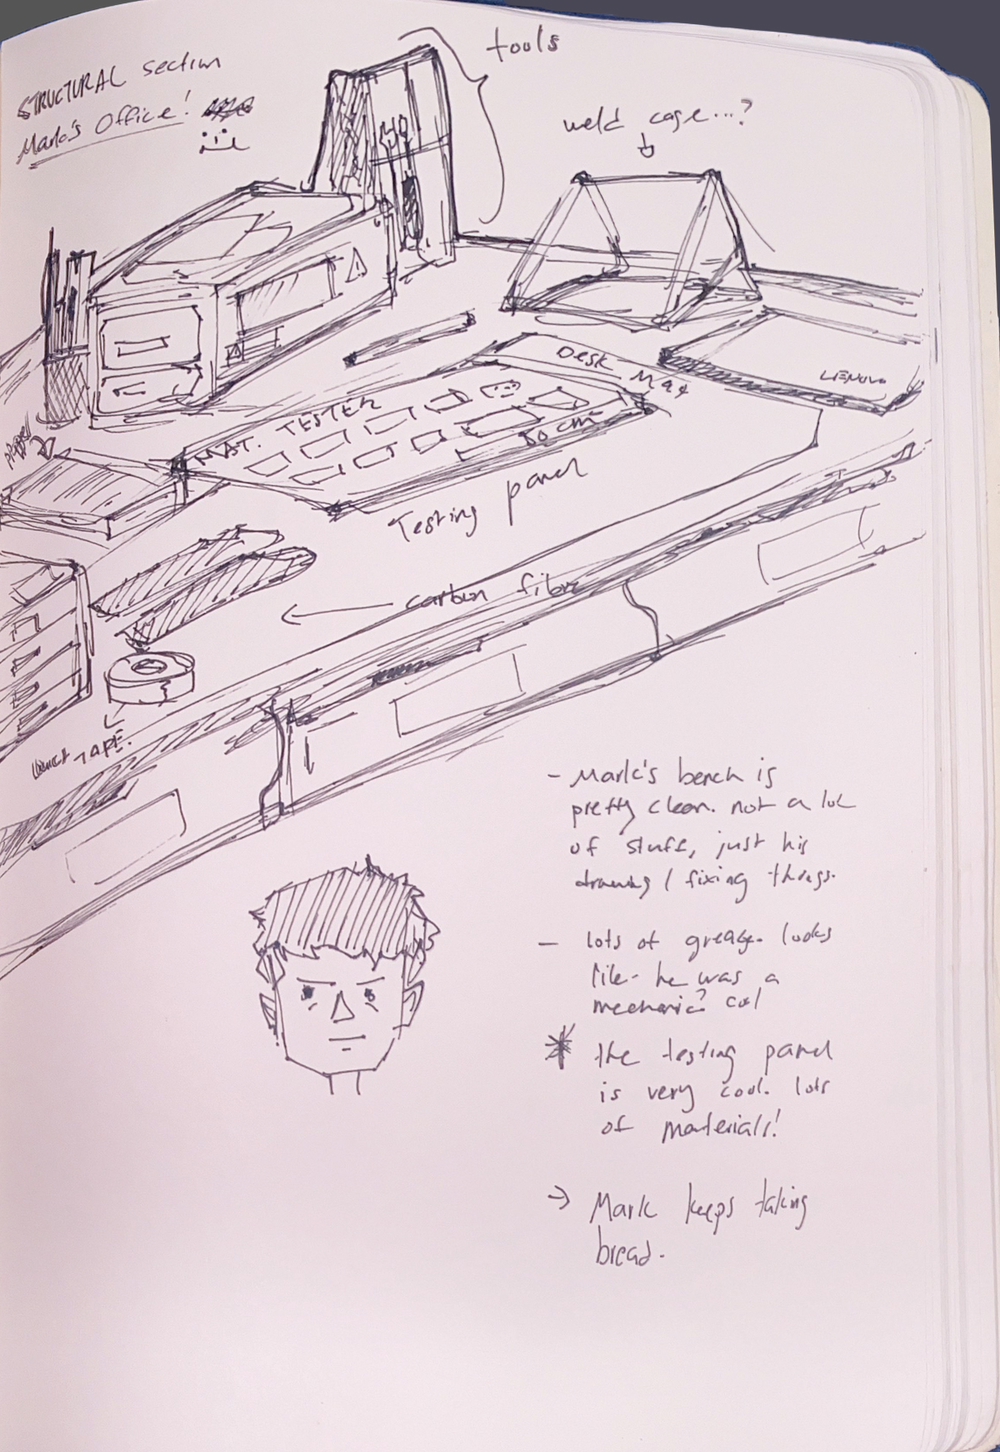 STRUCTURAL section
Mark's Office!
tools
weld cage...?
LENOVO
DESK MAT
MAT. TESTER
50 cm²
Testing panel
carbon fibre
DUCT TAPE.
- Mark's bench is
pretty clean. not a lot
of stuff, just his
drawing / fixing things.
- lots of grease. looks
like he was a
mechanic? cool
* the testing panel
is very cool. lots
of materials!
→ Mark keeps taking
bread.